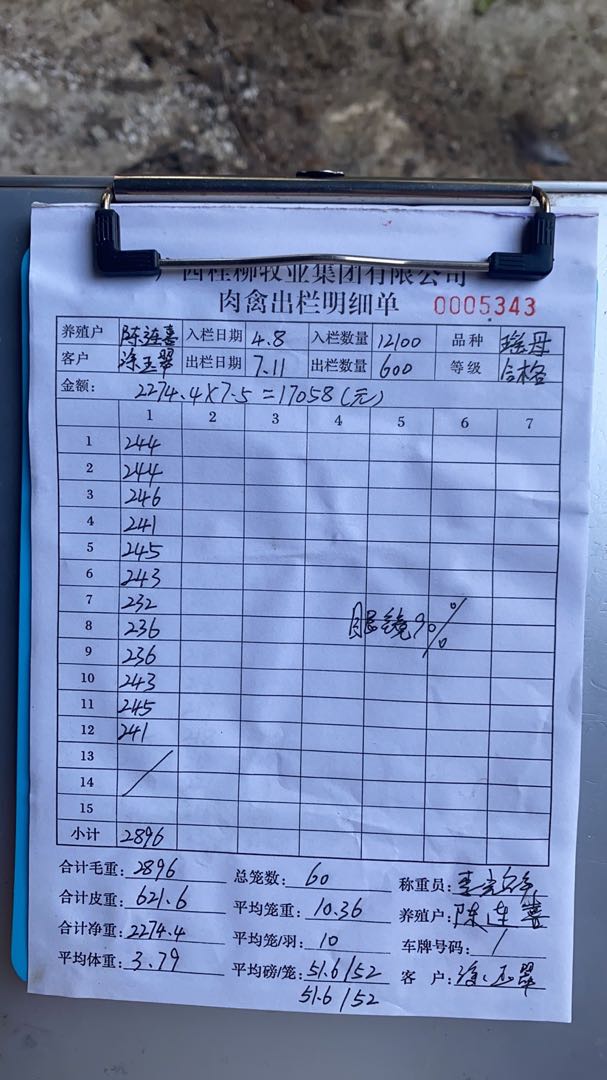 西桂柳牧业集团有限公司
肉禽出栏明细单 0005343
养殖户 陈连喜 入栏日期 4.8 入栏数量 12100 品种 瑶母
客户 涂玉翠 出栏日期 7.11 出栏数量 600 等级 合格
金额: 2274.4×7.5=17058(元)
1 2 3 4 5 6 7
1 244
2 244
3 246
4 241
5 245
6 243
7 232
8 236 眼镜90%
9 236
10 243
11 245
12 241
13
14
15
小计 2896
合计毛重: 2896 总笼数: 60 称重员:
合计皮重: 621.6 平均笼重: 10.36 养殖户: 陈连喜
合计净重: 2274.4 平均笼/羽: 10 车牌号码: /
平均体重: 3.79 平均磅/笼: 51.6/52 客户: 涂玉翠
51.6/52